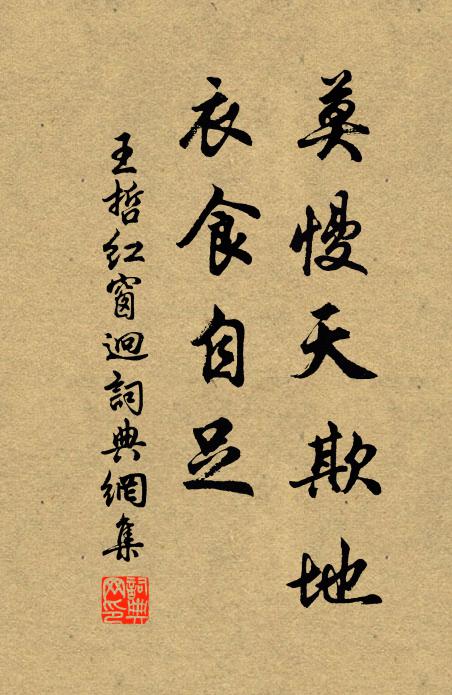 莫慢天欺地
衣食自足
王哲紅窗迥詞典網集
詞典网印